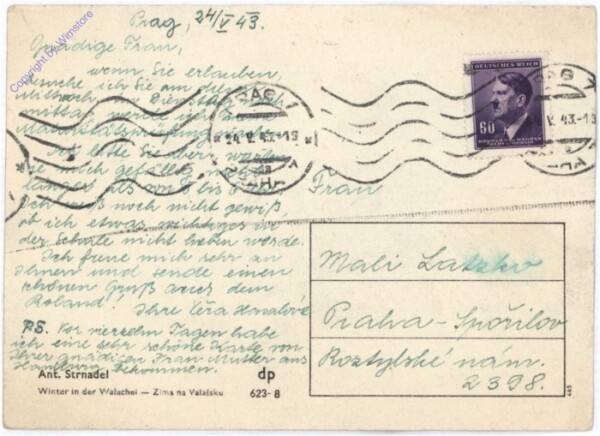 Copyright by Wimstore
Prag, 24/V 43.
Gnädige Frau,
wenn Sie erlauben,
suche ich Sie am
Mittwoch, Dienstag
mittag werde ich
Ich bitte Sie aber,
länger als von bis
Ich weiß noch nicht gewiß,
ob ich etwas wichtiges in
der Schule nicht haben werde.
Ich freue mich sehr zu
Ihnen und sende einen
schönen Gruß aus dem
Roland! Ihre Věra
P.S. Vor vierzehn Tagen habe
ich eine sehr schöne Karte von
Ihrer gnädigen Frau Mutter aus
Hamburg bekommen.
Ant. Strnadel dp
Winter in der Walachei — Zima na Valašsku 623-8
DEUTSCHES REICH
60
BÖHMEN U. MÄHREN
ČECHY A MORAVA
PRAG 1
24. V. 43.-13
PRAHA
PRAG
V. 43.-13
Frau
Mali
Praha-Spořilov
Roztylské nám.
2398.